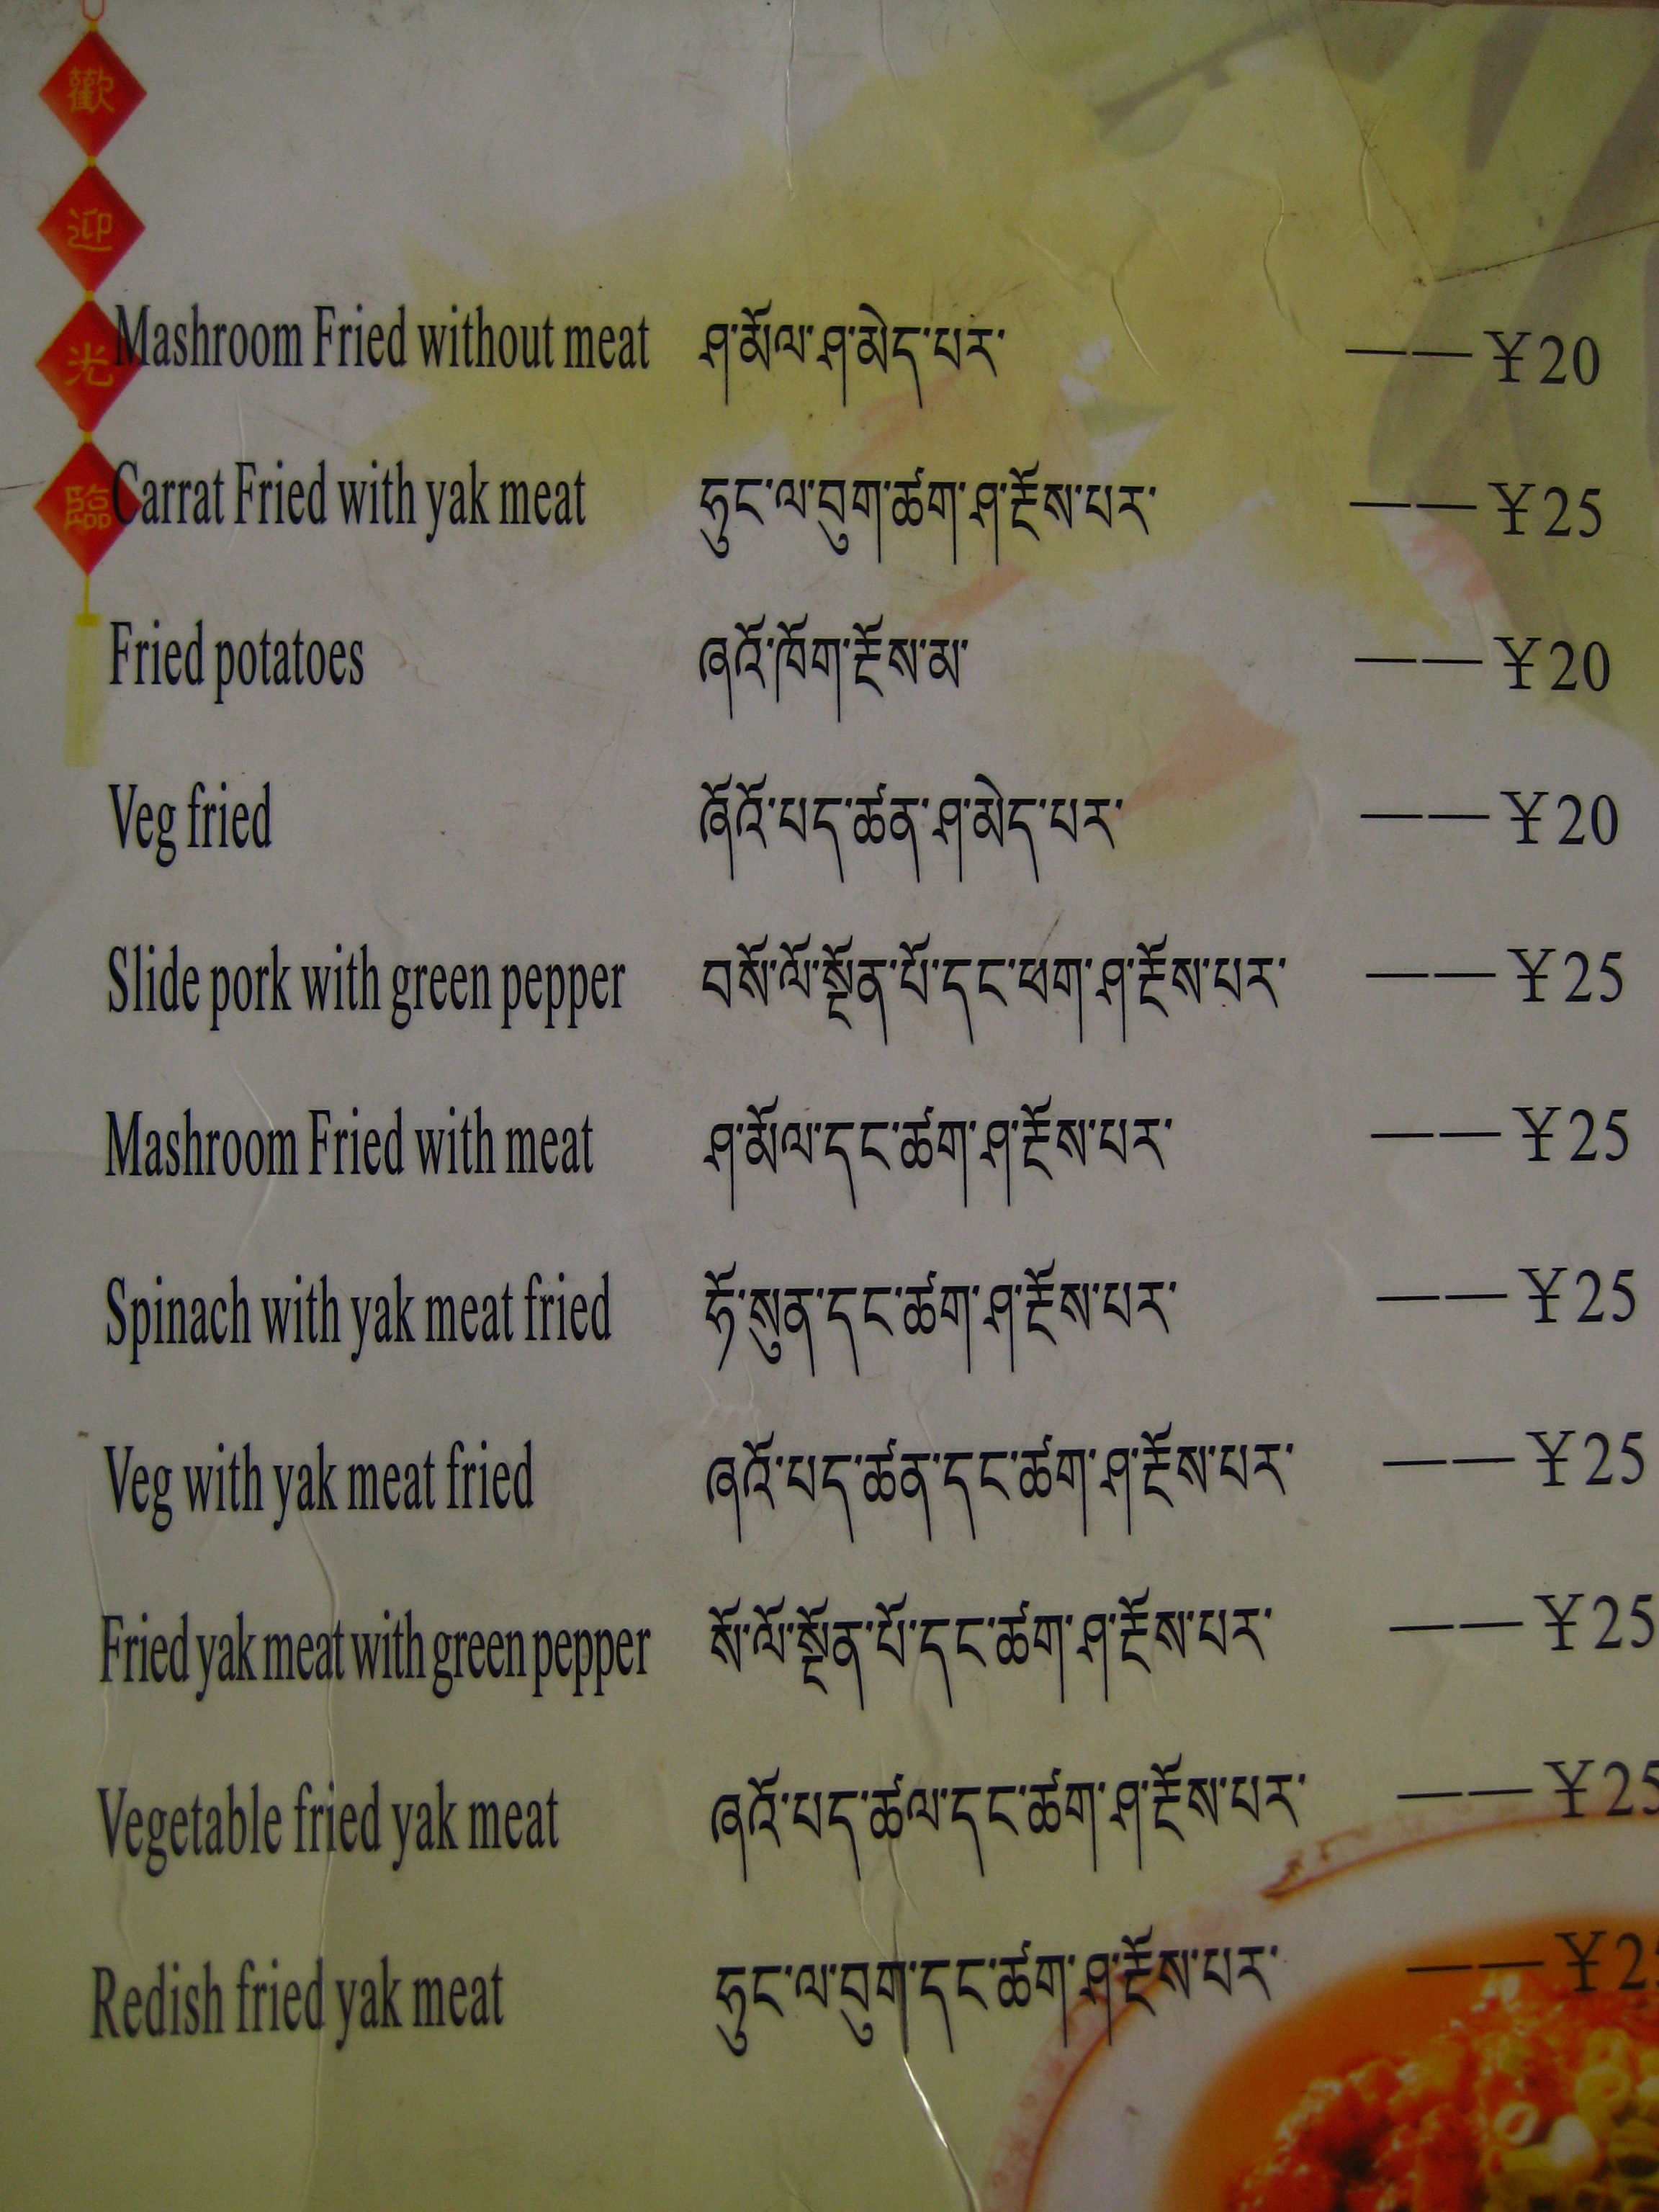 歡
迎
光
臨
Mashroom Fried without meat ཤ་མོལ་ཤ་མེད་པར་ ——￥20
Carrat Fried with yak meat ཧུང་ལ་བུག་ཚག་ཤ་རྔོས་པར་ ——￥25
Fried potatoes ཞའོ་ཁོག་རྔོས་མ་ ——￥20
Veg fried ཞོའོ་པད་ཚན་ཤ་མེད་པར་ ——￥20
Slide pork with green pepper བསོ་ལོ་སྔོན་པོ་དང་ཕག་ཤ་རྔོས་པར་ ——￥25
Mashroom Fried with meat ཤ་མོལ་དང་ཚག་ཤ་རྔོས་པར་ ——￥25
Spinach with yak meat fried ཧོ་སུན་དང་ཚག་ཤ་རྔོས་པར་ ——￥25
Veg with yak meat fried ཞའོ་པད་ཚན་དང་ཚག་ཤ་རྔོས་པར་ ——￥25
Fried yak meat with green pepper སོ་ལོ་སྔོན་པོ་དང་ཚག་ཤ་རྔོས་པར་ ——￥25
Vegetable fried yak meat ཞའོ་པད་ཚལ་དང་ཚག་ཤ་རྔོས་པར་ ——￥25
Redish fried yak meat ཧུང་ལ་བུག་དང་ཚག་ཤ་རྔོས་པར་ ——￥2